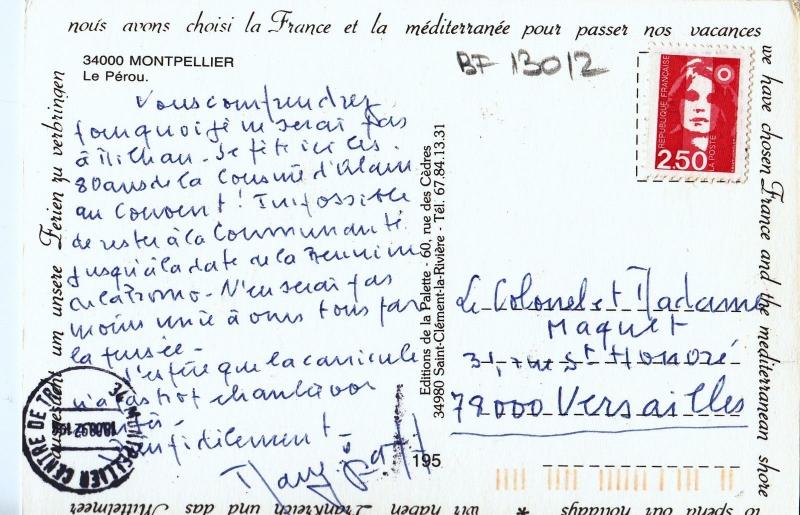 nous avons choisi la France et la méditerranée pour passer nos vacances
we have chosen France and the mediterranean shore
to spend our holidays * wir haben
Frankreich und das Mittelmeer
um unsere Ferien zu verbringen
34000 MONTPELLIER
Le Pérou.
BF 13012
REPUBLIQUE FRANÇAISE
2,50
LA POSTE
Vous comprendrez
pourquoi je ne serai pas
à . Je fête ici les
80 ans de la Cousine d'Alain
au Couvent ! Impossible
de rester à la Communauté
jusqu'à la date de la Réunion
de la Promo. N'en serai pas
moins unie à vous tous par
la pensée.
J'espère que la canicule
n'a pas trop chanté vor

fidèlement
Editions de la Palette - 60, rue des Cèdres
34980 Saint-Clément-la-Rivière - Tél. 67.84.13.31
195
Le Colonel et Madame
Maquet
31, rue St Honoré
78000 Versailles
MONTPELLIER CENTRE DE TRI